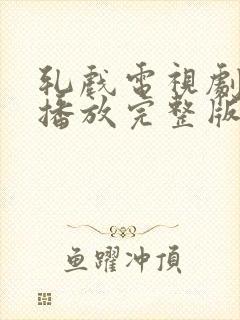 乳戲電視劇
播放完整版
鱼躍冲頂